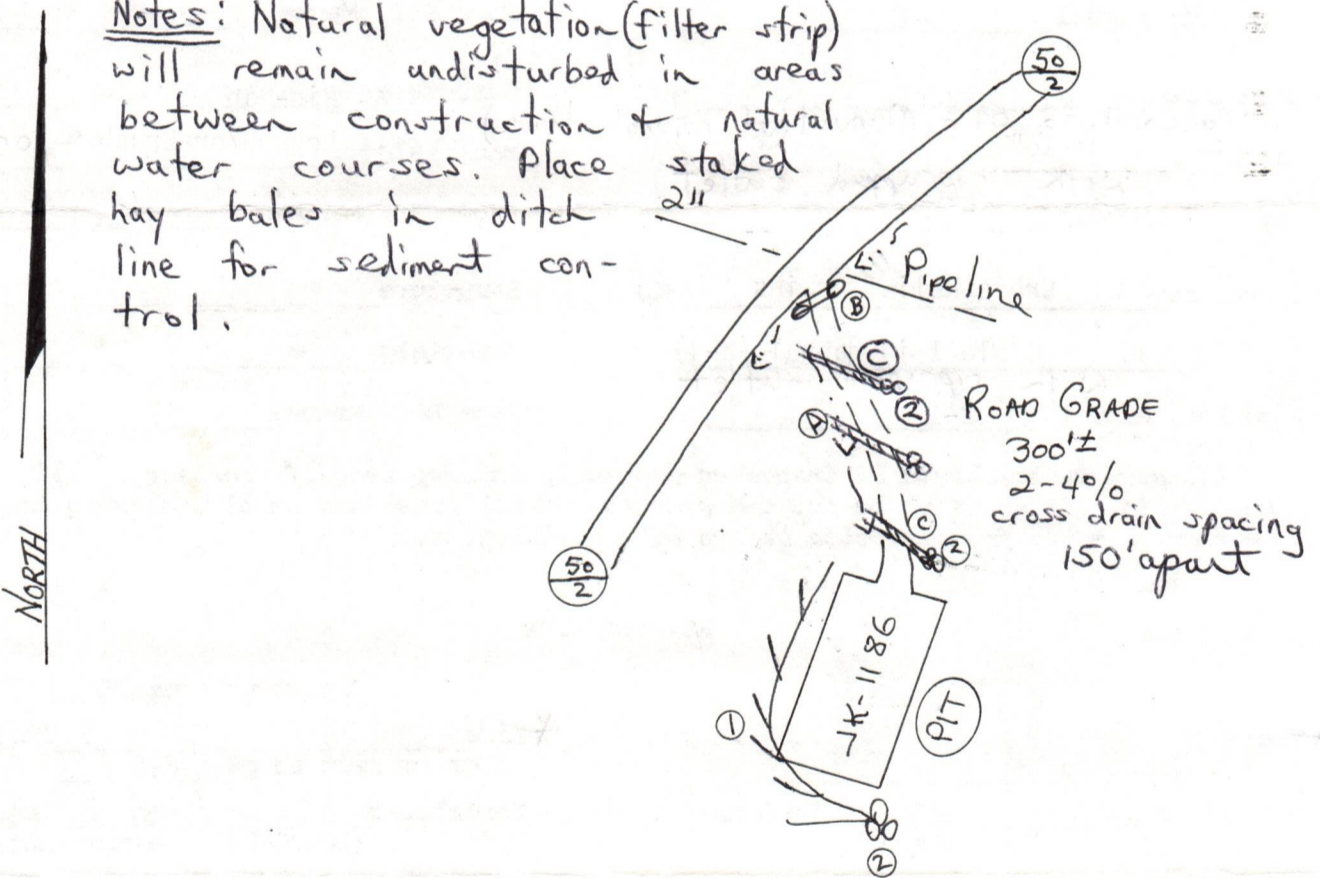 Notes: Natural vegetation (filter strip)
will remain undisturbed in areas
between construction & natural
water courses. Place staked
hay bales in ditch
line for sediment con-
trol.
50
2
2"
Pipeline
B
C
2
A
ROAD GRADE
300'±
2-4%
cross drain spacing
150' apart
C
2
50
2
NORTH
JK-1186
PIT
1
2